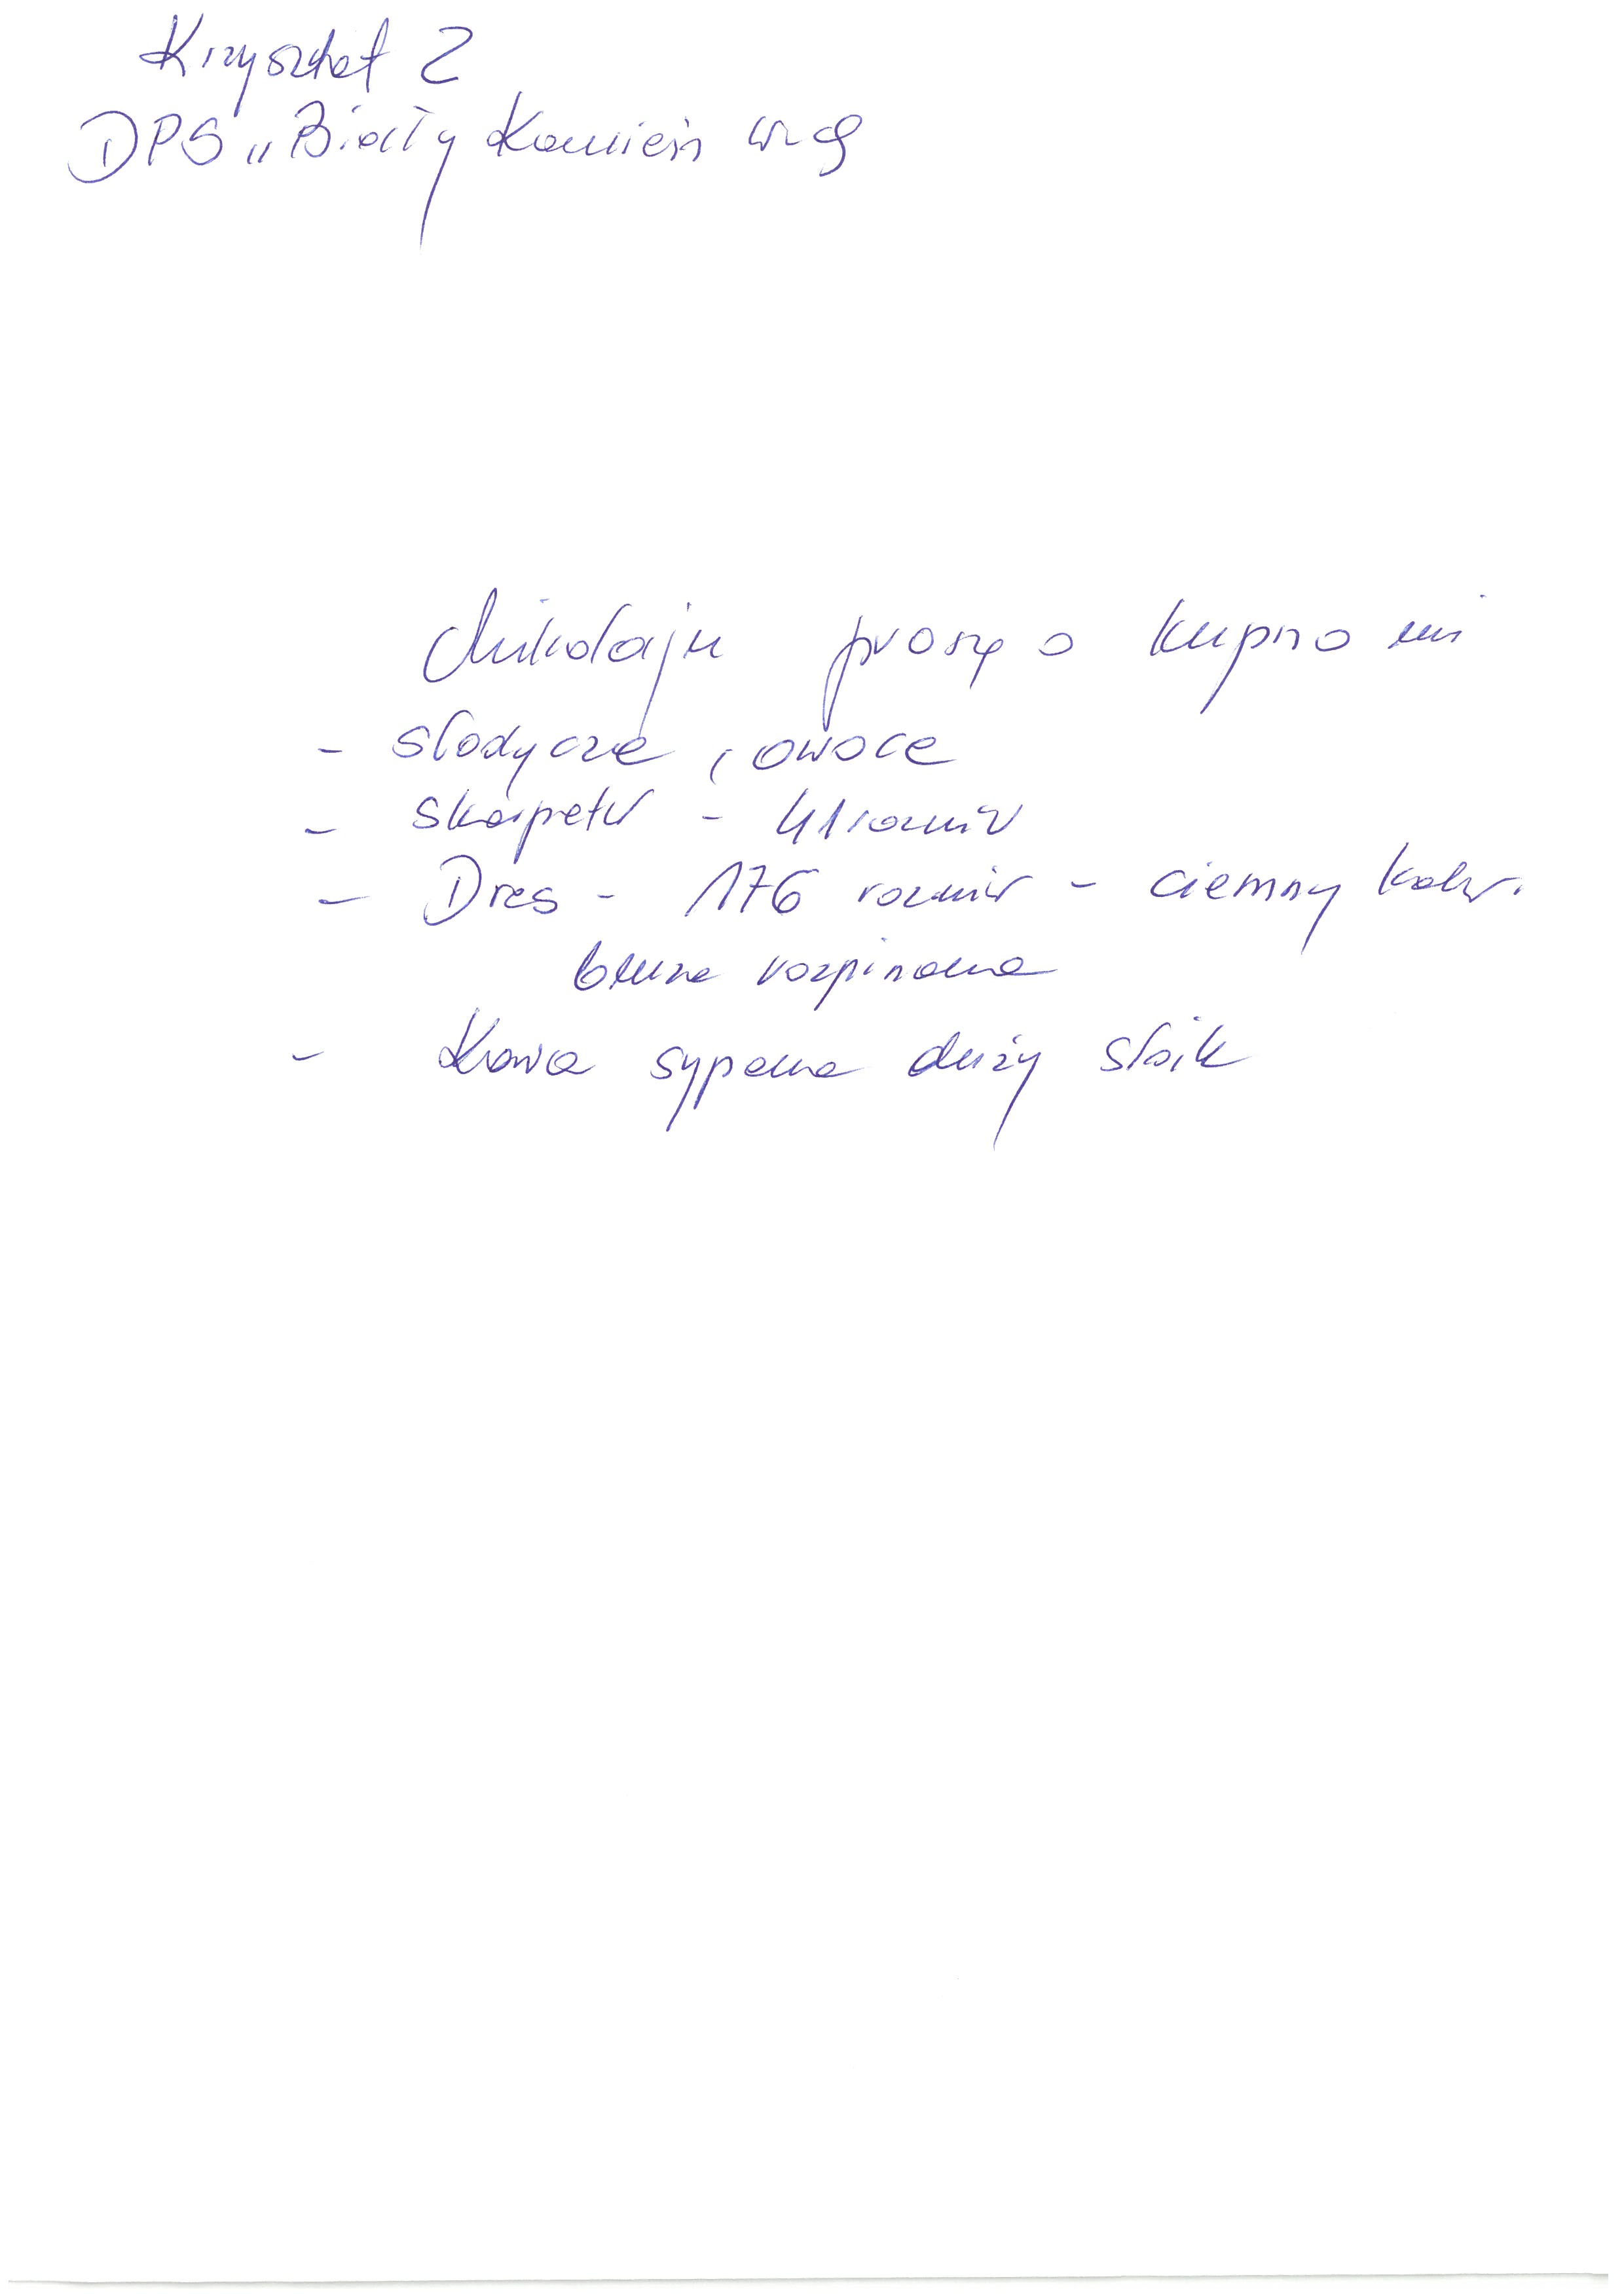 Krzysztof Z
DPS „Biały Kamień
Mikołaju proszę o kupno mi
- słodycze, owoce
- skarpetki - 41 rozmir
- Dres - 176 rozmir - ciemny kolor.
bluza rozpinana
- Kawa sypana duży słoik